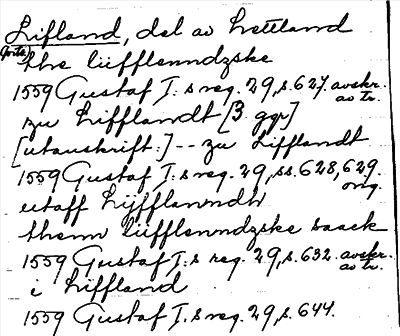 Lifland, del av Lettland
forts.
the lüfflenndzske
1559 Gustaf I:s reg. 29, s. 627. avskr. av tr.
zu Lifflandt [3 ggr]
[utanskrift:] -- zu Lifflandt
1559 Gustaf I:s reg. 29, ss. 628, 629. orig.
utaff Lijfflanndh
thenn lüfflenndzske saack
1559 Gustaf I:s reg. 29, s. 632. avskr. av tr.
i Liffland
1559 Gustaf I.s reg. 29, s. 644.